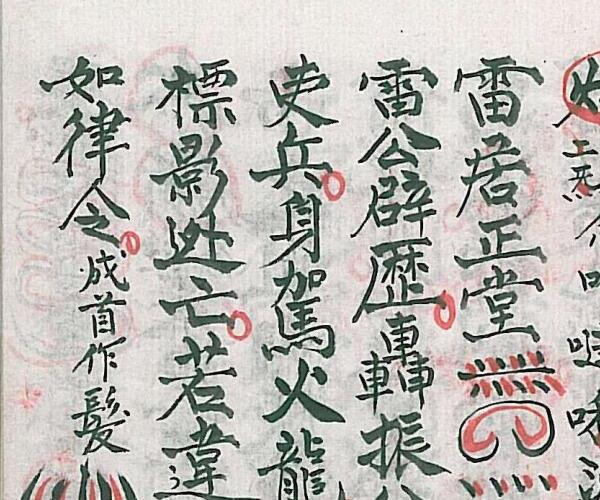 上
雷君正堂
雷公辟歷轟振
吏兵身駕火龍
標影迯亡若違
如律令成首作髮